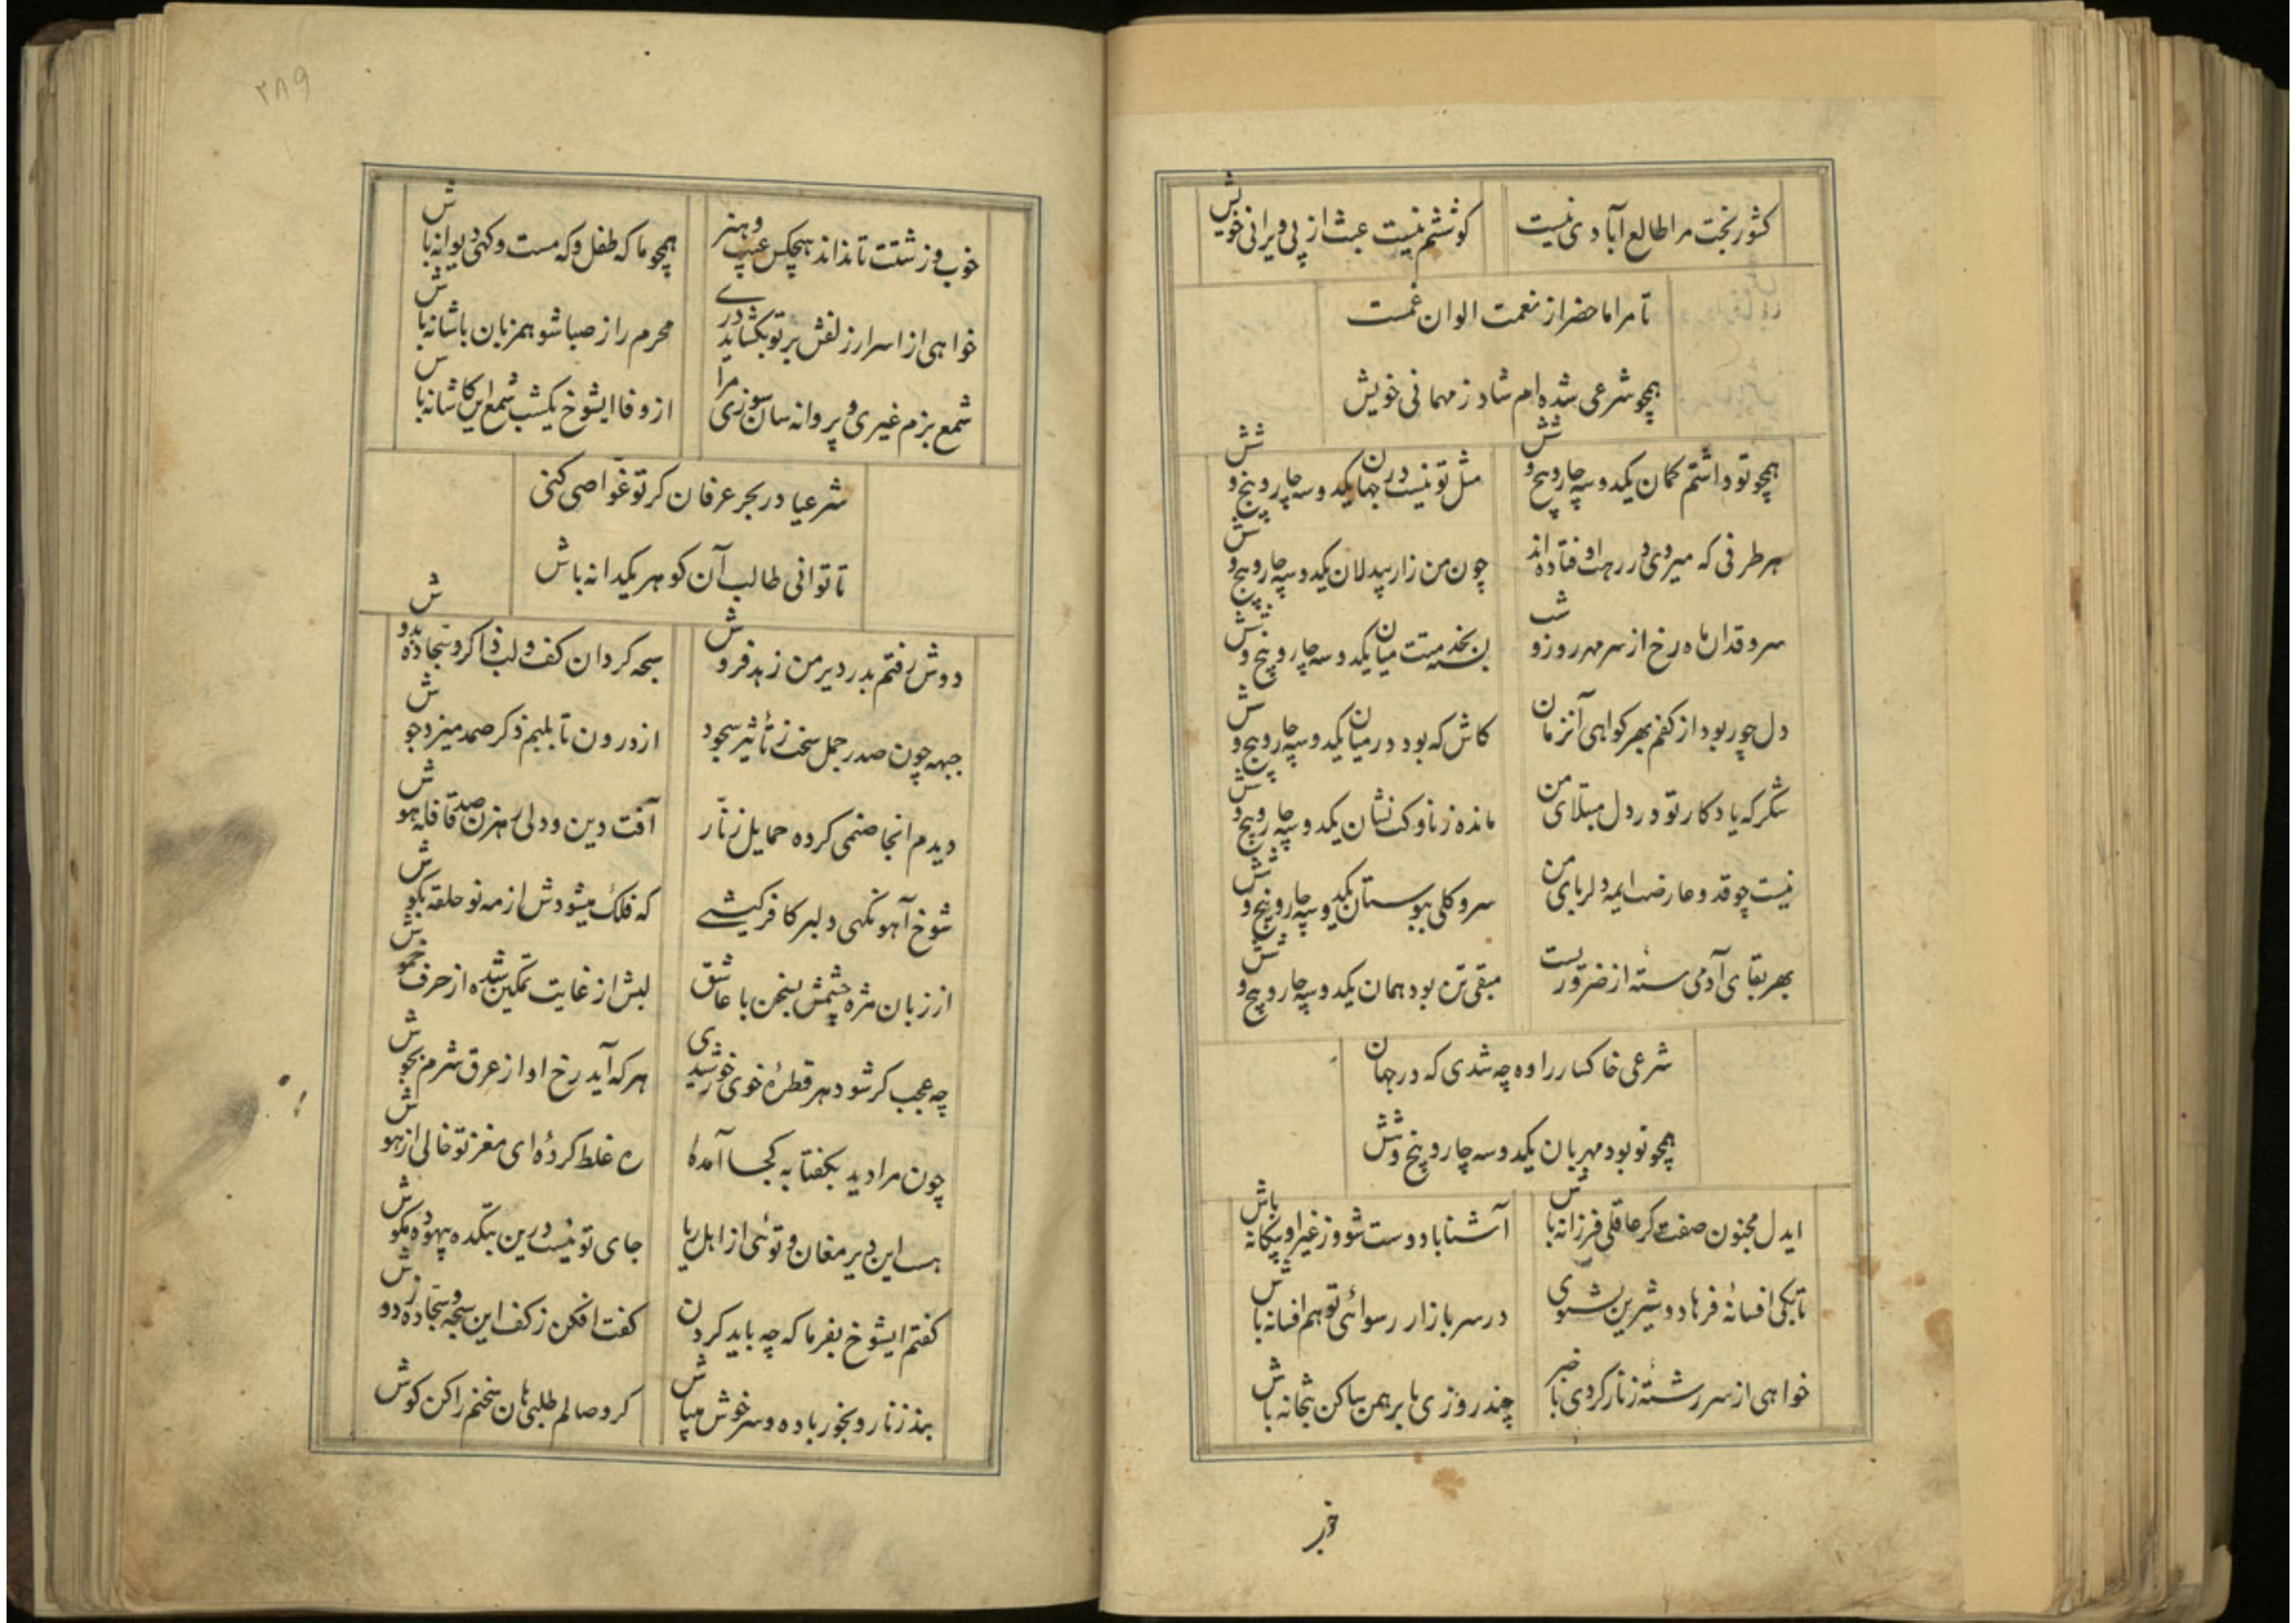 کشور بخت مرا طالع آبادی نیست کوششم نیست عبث از پی ویرانی خویش
تا مرا ماحضر از نعمت الوان غمست
همچو شرعی شده ام شاد ز مهمانی خویش
همچو تو داشتم کمان یکدو سه چار و پنج و شش مثل تو نیست در جهان یکدو سه چار و پنج و شش
هر طرفی که میروی در رهت اوفتاده اند چون من زار بیدلان یکدو سه چار و پنج و شش
سرو قدان ماه رخ از سر مهر روز و شب بسته بخدمتت میان یکدو سه چار و پنج و شش
دل چو ربود از کفم بهر کواهی آنزمان کاش که بود در میان یکدو سه چار و پنج و شش
شکر که یادکار تو در دل مبتلای من مانده ز ناوکت نشان یکدو سه چار و پنج و شش
نیست چو قد و عارضت ایمه دلربای من سرو کلی ببوستان یکدو سه چار و پنج و شش
بهر بقای آدمی ستهٔ از ضروریست مبقی تن بود همان یکدو سه چار و پنج و شش
شرعی خاکسار را وه چه شدی که در جهان
همچو تو بود مهربان یکدو سه چار و پنج و شش
ایدل مجنون صفت کر عاقلی فرزانه باش آشنا با دوست شو وز غیر او بیکانه باش
تا بکی افسانهٔ فرهاد و شیرین بشنوی در سر بازار رسوائی تو هم افسانه باش
خواهی از سر رشتهٔ زنار کردی با خبر چند روزی با برهمن ساکن بتخانه باش
خوب
۲۸۹
خوب و زشتت تا نداند هیچکس عیب و هنر همچو ما که طفل و که مست و کهی دیوانه باش
خواهی از اسرار زلفش بر تو بکشاید دری محرم راز صبا شو همزبان با شانه باش
شمع بزم غیری و پروانه سان سوزی مرا از وفا ایشوخ یکشب شمع این کاشانه باش
شرعیا در بحر عرفان کر تو غواصی کنی
تا توانی طالب آن کوهر یکدانه باش
دوش رفتم بدر دیر من زهد فروش سبحه کردان کف و لب ذاکر و سجاده بدوش
جبهه چون صدر جمل سخت ز تأثیر سجود از درون تا بلبم ذکر صمد میزد جوش
دیدم انجا صنمی کرده حمایل زنّار آفت دین و دلی رهزن صد قافله هوش
شوخ آهو نکهی دلبر کافر کیشی که فلک میشودش از مه نو حلقه بکوش
از زبان مژه چشمش بسخن با عاشق لبش از غایت تمکین شده از حرف خموش
چه عجب کر شود هر قطرهٔ خوی خورشیدی هر که آید رخ او از عرق شرم بجوش
چون مرا دید بکفتا به کجا آمدهٔ ره غلط کردهٔ ای مغز تو خالی از هوش
هست این دیر مغان و توئی از اهل ریا جای تو نیست درین بتکده بیهوده مکوش
کفتم ایشوخ بفرما که چه باید کردن کفت افکن ز کف این سبحه و سجاده ز دوش
بند زنار و بخور باده و سرخوش میباش کر وصالم طلبی هان سخنم را کن کوش